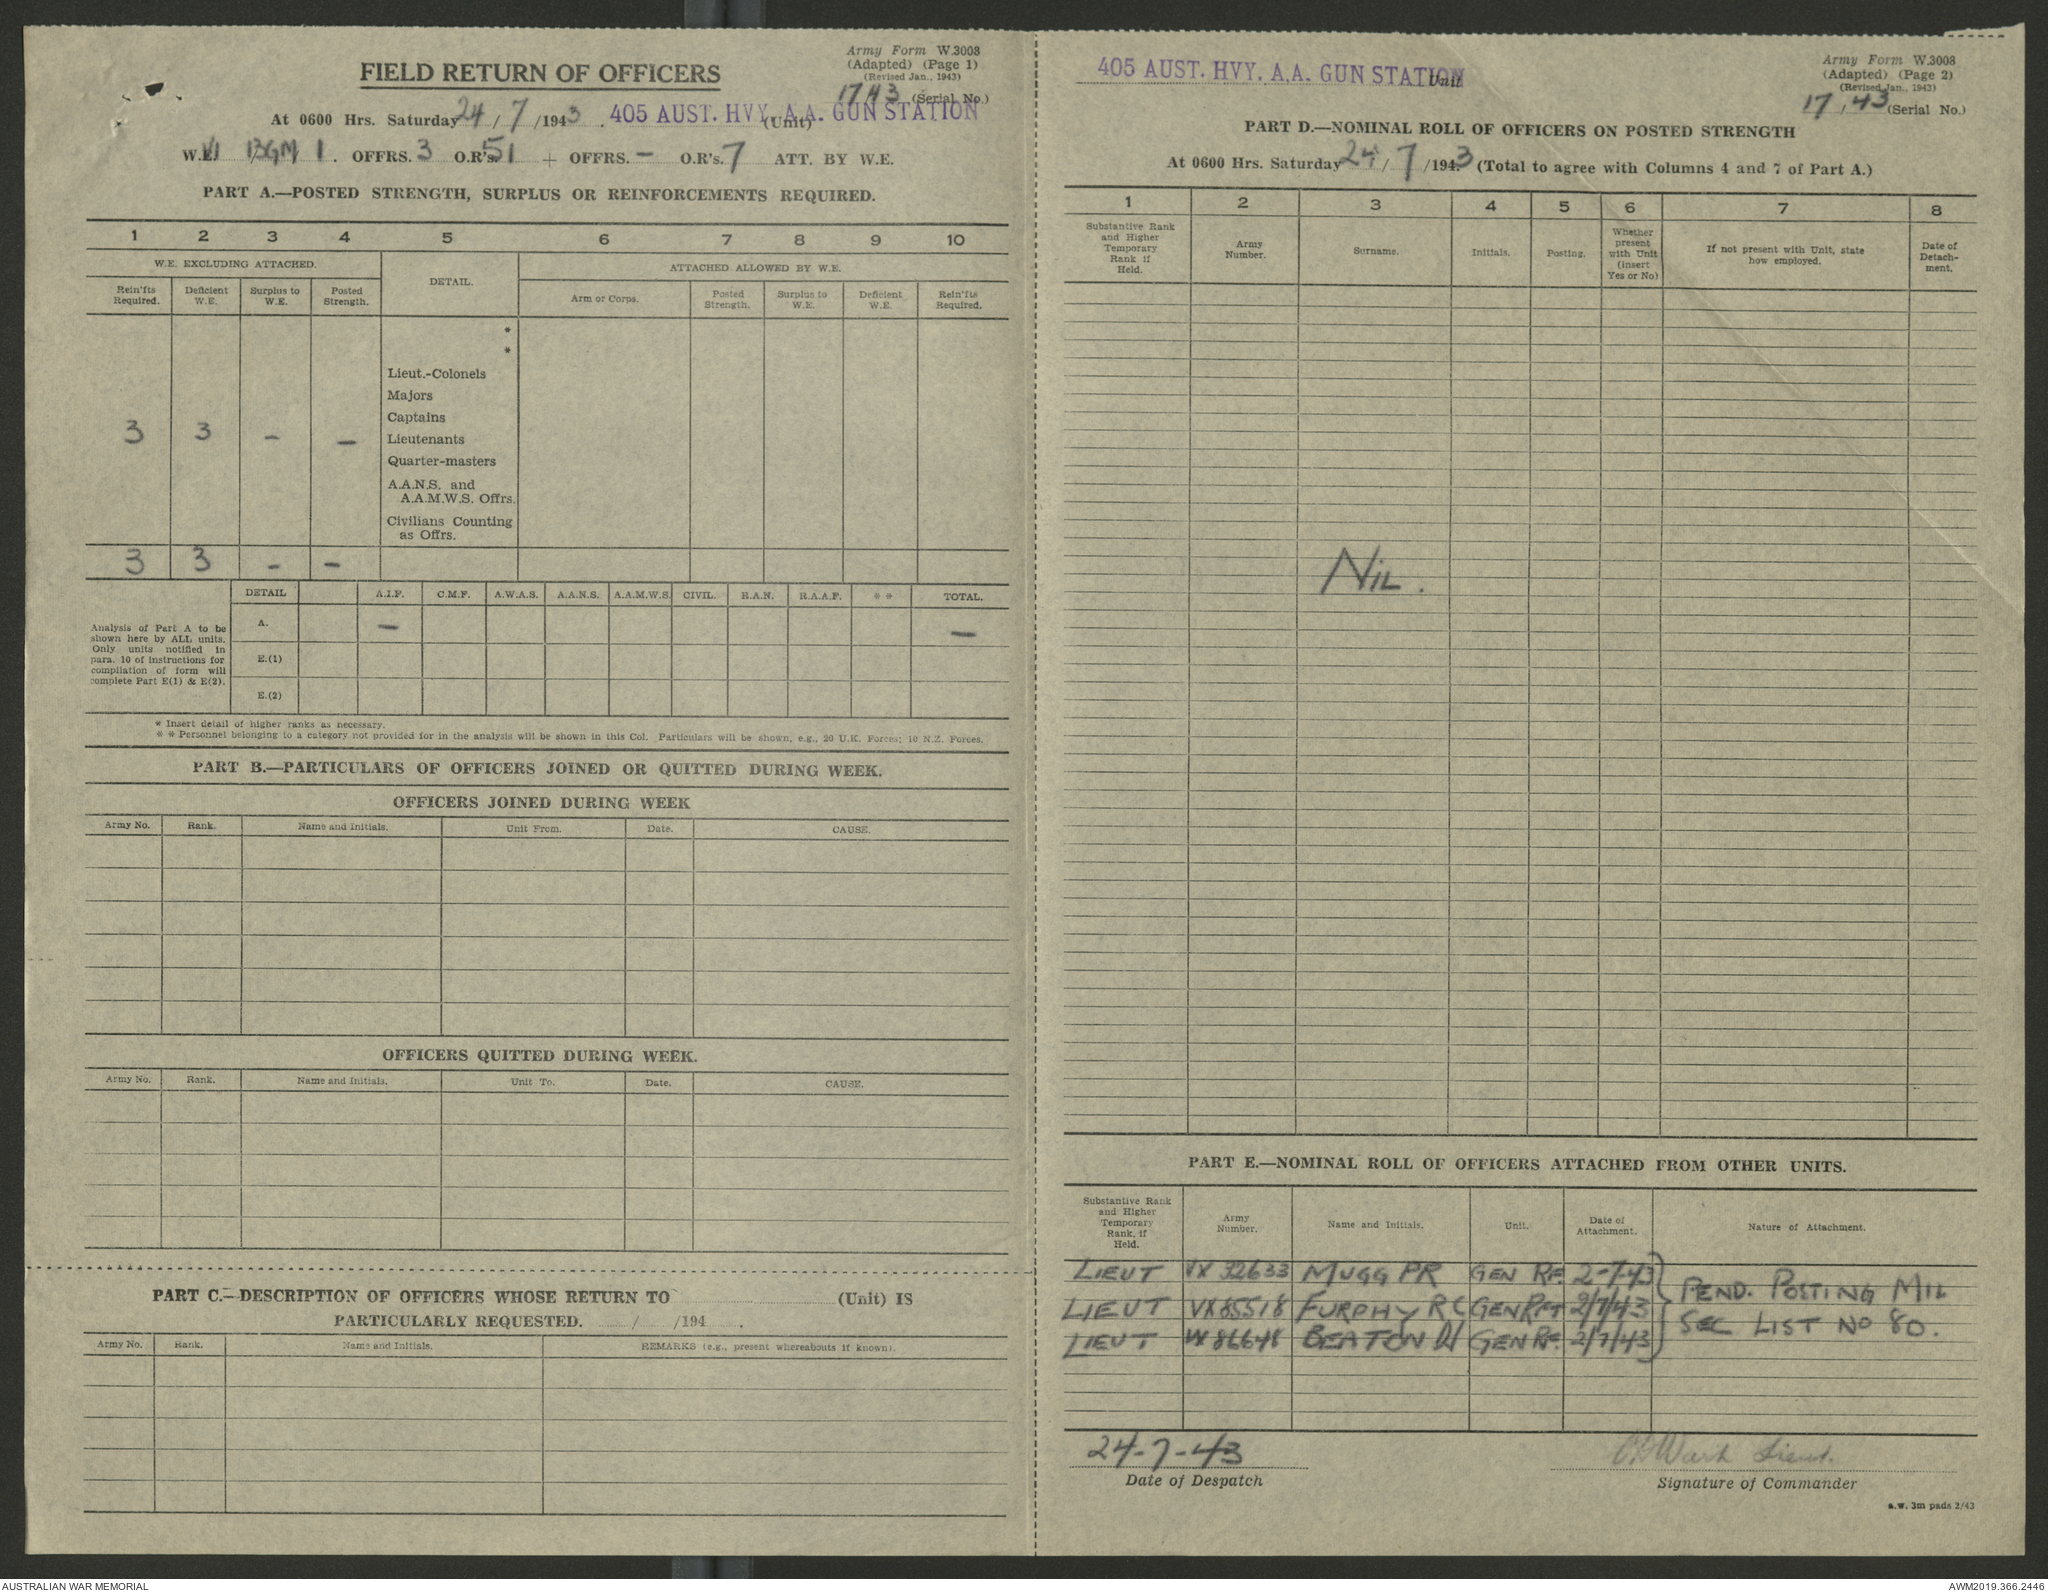 Army Form W.3008
(Adapted) (Page 1)
(Revised Jan., 1943)
FIELD RETURN OF OFFICERS
17/43 (Serial No.)
At 0600 Hrs. Saturday 24/7/1943. 405 AUST. HVY. A.A. GUN STATION (Unit)
W.E. VI BGM 1. OFFRS. 3 O.R's. 51 + OFFRS. - O.R's. 7 ATT. BY W.E.
PART A.—POSTED STRENGTH, SURPLUS OR REINFORCEMENTS REQUIRED.
1 2 3 4 5 6 7 8 9 10
W.E. EXCLUDING ATTACHED. DETAIL. ATTACHED ALLOWED BY W.E.
Rein'fts Required. Deficient W.E. Surplus to W.E. Posted Strength. Arm or Corps. Posted Strength. Surplus to W.E. Deficient W.E. Rein'fts Required.
*
*
Lieut.-Colonels
Majors
Captains
3 3 - - Lieutenants
Quarter-masters
A.A.N.S. and
A.A.M.W.S. Offrs.
Civilians Counting
as Offrs.
3 3 - -
DETAIL A.I.F. C.M.F. A.W.A.S. A.A.N.S. A.A.M.W.S. CIVIL. R.A.N. R.A.A.F. * * TOTAL.
Analysis of Part A to be
shown here by ALL units.
Only units notified in
para. 10 of instructions for
compilation of form will
complete Part E(1) & E(2).
A. - -
E.(1)
E.(2)
* Insert detail of higher ranks as necessary.
* * Personnel belonging to a category not provided for in the analysis will be shown in this Col. Particulars will be shown, e.g., 20 U.K. Forces; 10 N.Z. Forces.
PART B.—PARTICULARS OF OFFICERS JOINED OR QUITTED DURING WEEK.
OFFICERS JOINED DURING WEEK
Army No. Rank. Name and Initials. Unit From. Date. CAUSE.
OFFICERS QUITTED DURING WEEK.
Army No. Rank. Name and Initials. Unit To. Date. CAUSE.
PART C.—DESCRIPTION OF OFFICERS WHOSE RETURN TO (Unit) IS
PARTICULARLY REQUESTED. / /194 .
Army No. Rank. Name and Initials. REMARKS (e.g., present whereabouts if known).
405 AUST. HVY. A.A. GUN STATION Unit
Army Form W.3008
(Adapted) (Page 2)
(Revised Jan., 1943)
17/43 (Serial No.)
PART D.—NOMINAL ROLL OF OFFICERS ON POSTED STRENGTH
At 0600 Hrs. Saturday 24/7/1943 (Total to agree with Columns 4 and 7 of Part A.)
1 2 3 4 5 6 7 8
Substantive Rank and Higher Temporary Rank if Held. Army Number. Surname. Initials. Posting. Whether present with Unit (insert Yes or No) If not present with Unit, state how employed. Date of Detach-ment.
NIL.
PART E.—NOMINAL ROLL OF OFFICERS ATTACHED FROM OTHER UNITS.
Substantive Rank and Higher Temporary Rank, if Held. Army Number. Name and Initials. Unit. Date of Attachment. Nature of Attachment.
LIEUT VX 32633 MUGG PR GEN RF. 2-7-43 } PEND. POSTING MIL
LIEUT VX85518 FURPHY RC GEN RFT 2/7/43
LIEUT VX 86648 BEATON GEN RF. 2/7/43 } SEC LIST NO 80.
24-7-43
Lieut.
Date of Despatch
Signature of Commander
a.w. 3m pads 2/43
AUSTRALIAN WAR MEMORIAL
AWM2019.366.2446